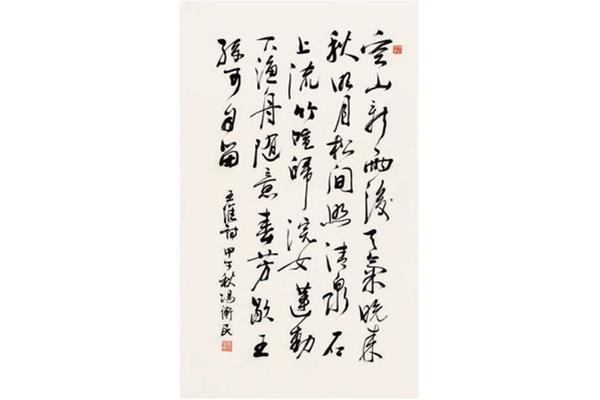 空山新雨後天氣晚来
秋明月松间照清泉石
上流竹喧歸浣女蓮動
下渔舟随意春芳歇王
孫可自留
王維詩甲午秋冯衛民